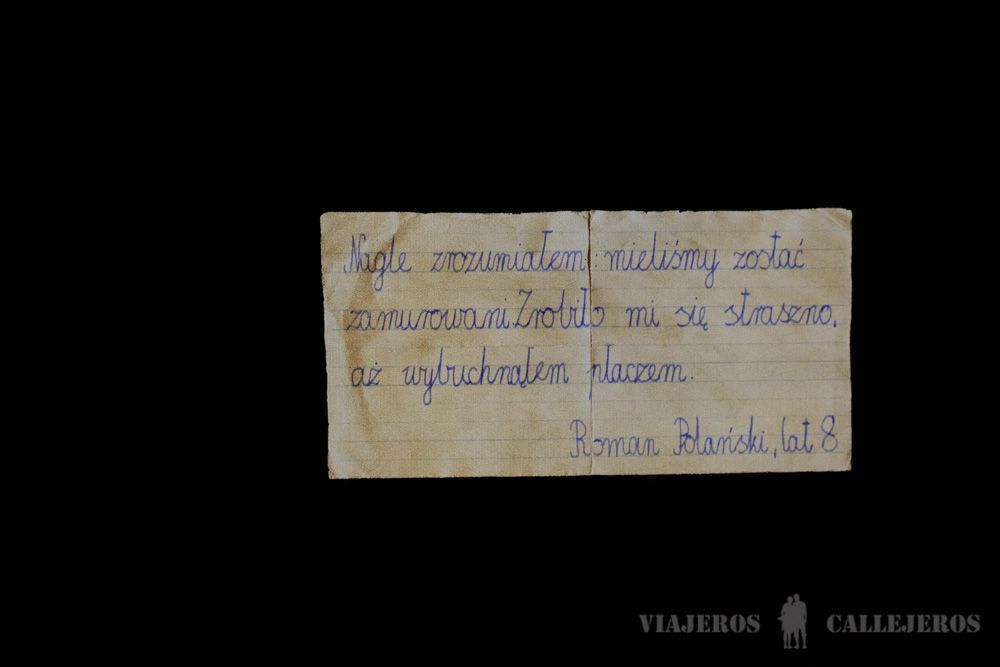 Nagle zrozumiałem: mieliśmy zostać
zamurowani. Zrobiło mi się straszno,
aż wybuchnąłem płaczem.
Roman Polański, lat 8
VIAJEROS CALLEJEROS